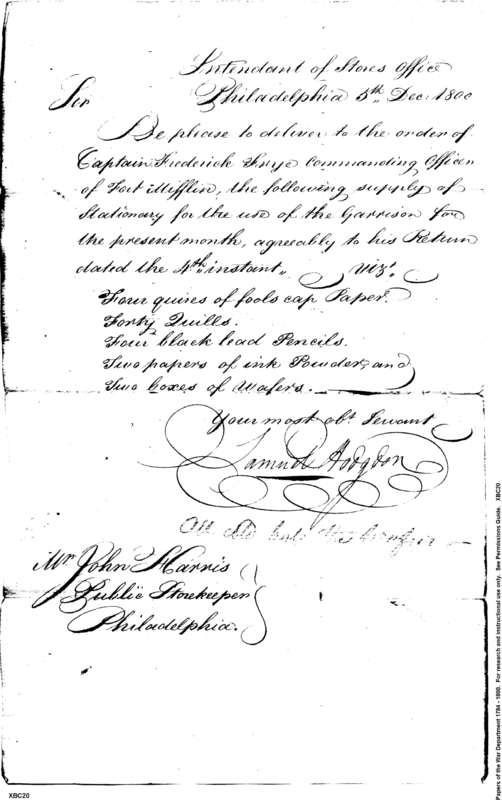 Intendant of Stores Office
Philadelphia 5th Dec. 1800
Sir
Be please to deliver to the order of
Captain Frederick Frye Commanding Officer
of Fort Mifflin, the following supply of
Stationary for the use of the Garrison for
the present month, agreeably to his Return
dated the 4th instant, Viz.
Four quires of fools cap Paper.
Forty Quills.
Four black lead Pencils.
Two papers of ink Powder, and
Two boxes of Wafers.
Your most obt. Servant
Samuel Hodgdon
Mr. John Harris
Public Storekeeper
Philadelphia.
XBC20
Papers of the War Department 1784 - 1800. For research and instructional use only. See Permissions Guide. XBC20